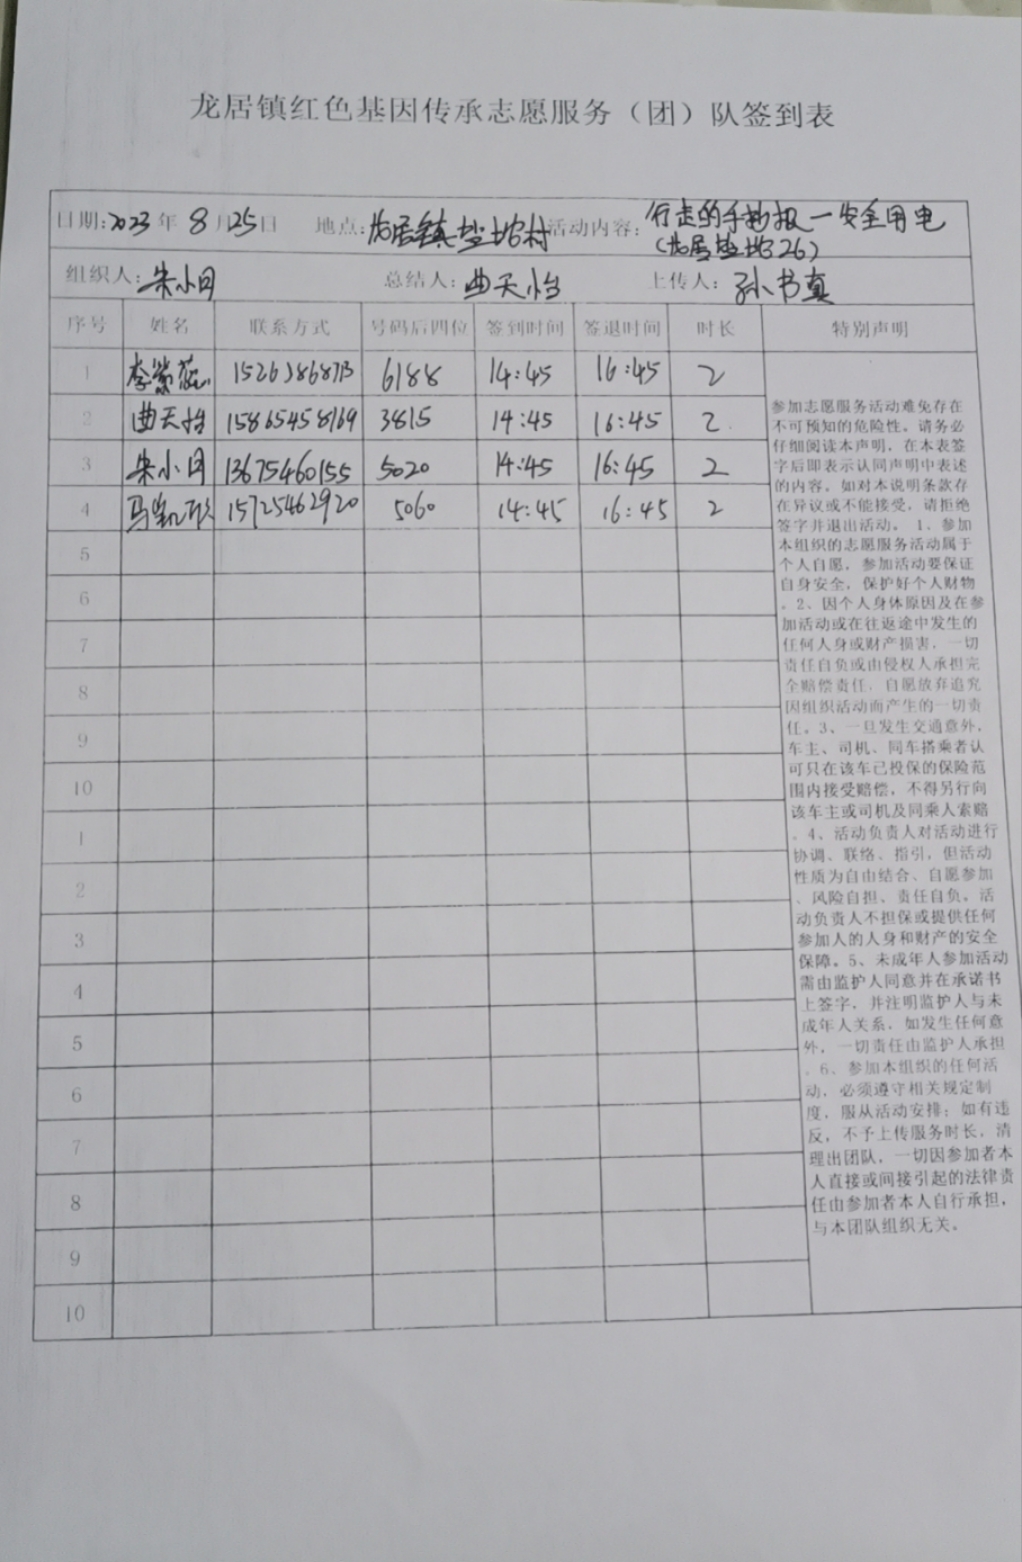 龙居镇红色基因传承志愿服务（团）队签到表
日期:2023年 8月25日 地点:龙居镇盐坨村 活动内容: 行走的手抄报—安全用电
(龙居盐坨26)
组织人:朱小月 总结人:曲天怡 上传人: 孙书真
序号 姓名 联系方式 号码后四位 签到时间 签退时间 时长 特别声明
1 李 6188 14:45 16:45 2
2 曲天怡 15865458169 3815 14:45 16:45 2
3 朱小月 13675460155 5020 14:45 16:45 2
4 马凯 15725462920 5060 14:45 16:45 2
5
6
7
8
9
10
1
2
3
4
5
6
7
8
9
10
参加志愿服务活动难免存在
不可预知的危险性。请务必
仔细阅读本声明，在本表签
字后即表示认同声明中表述
的内容。如对本说明条款存
在异议或不能接受，请拒绝
签字并退出活动。 1、参加
本组织的志愿服务活动属于
个人自愿，参加活动要保证
自身安全，保护好个人财物
。2、因个人身体原因及在参
加活动或在往返途中发生的
任何人身或财产损害，一切
责任自负或由侵权人承担完
全赔偿责任，自愿放弃追究
因组织活动而产生的一切责
任。3、一旦发生交通意外，
车主、司机、同车搭乘者认
可只在该车已投保的保险范
围内接受赔偿，不得另行向
该车主或司机及同乘人索赔
。4、活动负责人对活动进行
协调、联络、指引，但活动
性质为自由结合、自愿参加
、风险自担、责任自负。活
动负责人不担保或提供任何
参加人的人身和财产的安全
保障。5、未成年人参加活动
需由监护人同意并在承诺书
上签字，并注明监护人与未
成年人关系，如发生任何意
外，一切责任由监护人承担
。6、参加本组织的任何活
动，必须遵守相关规定制
度，服从活动安排；如有违
反，不予上传服务时长，清
理出团队，一切因参加者本
人直接或间接引起的法律责
任由参加者本人自行承担，
与本团队组织无关。